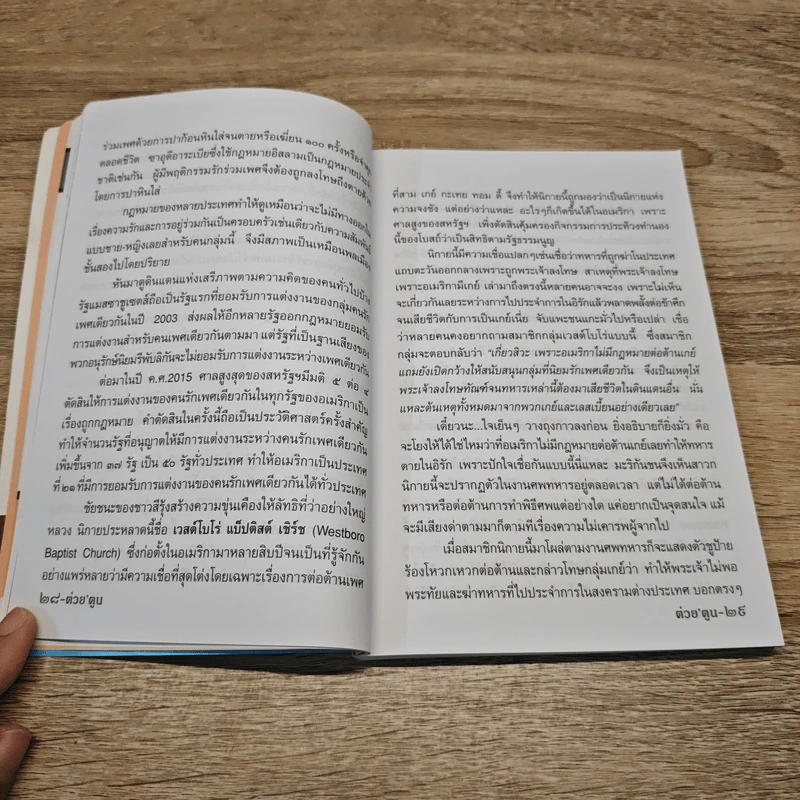 ร่วมเพศด้วยการปาก้อนหินใส่จนตายหรือเฆี่ยน ๑๐๐ ครั้งหรือจำคุก
ตลอดชีวิต ซาอุดีอาระเบียซึ่งใช้กฎหมายอิสลามเป็นกฎหมายประจำ
ชาติเช่นกัน ผู้มีพฤติกรรมรักร่วมเพศจึงต้องถูกลงโทษถึงตายด้วย
โดยการปาหินใส่
กฎหมายของหลายประเทศทำให้ดูเหมือนว่าจะไม่มีทางออกใน
เรื่องความรักและการอยู่ร่วมกันเป็นครอบครัวเช่นเดียวกับความสัมพันธ์
แบบชาย-หญิงเลยสำหรับคนกลุ่มนี้ จึงมีสภาพเป็นเหมือนพลเมือง
ชั้นสองไปโดยปริยาย
หันมาดูดินแดนแห่งเสรีภาพตามความคิดของคนทั่วไปบ้าง
รัฐแมสซาชูเซตส์ถือเป็นรัฐแรกที่ยอมรับการแต่งงานของกลุ่มคนรัก
เพศเดียวกันในปี 2003 ส่งผลให้อีกหลายรัฐออกกฎหมายยอมรับ
การแต่งงานสำหรับคนเพศเดียวกันตามมา แต่รัฐที่เป็นฐานเสียงของ
พวกอนุรักษ์นิยมรีพับลิกันจะไม่ยอมรับการแต่งงานระหว่างเพศเดียวกัน
ต่อมาในปี ค.ศ.2015 ศาลสูงสุดของสหรัฐฯมีมติ ๕ ต่อ ๔
ตัดสินให้การแต่งงานของคนรักเพศเดียวกันในทุกรัฐของอเมริกาเป็น
เรื่องถูกกฎหมาย คำตัดสินในครั้งนี้ถือเป็นประวัติศาสตร์ครั้งสำคัญ
ทำให้จำนวนรัฐที่อนุญาตให้มีการแต่งงานระหว่างคนรักเพศเดียวกัน
เพิ่มขึ้นจาก ๓๗ รัฐ เป็น ๕๐ รัฐทั่วประเทศ ทำให้อเมริกาเป็นประเทศ
ที่ ๒๑ ที่มีการยอมรับการแต่งงานของคนรักเพศเดียวกันได้ทั่วประเทศ
ชัยชนะของชาวสีรุ้งสร้างความขุ่นเคืองให้ลัทธิที่ว่าอย่างใหญ่
หลวง นิกายประหลาดนี้ชื่อ เวสต์โบโร่ แบ็ปติสต์ เชิร์ช (Westboro
Baptist Church) ซึ่งก่อตั้งในอเมริกามาหลายสิบปีจนเป็นที่รู้จักกัน
อย่างแพร่หลายว่ามีความเชื่อที่สุดโต่งโดยเฉพาะเรื่องการต่อต้านเพศ
๒๘-ต่วย'ตูน
ที่สาม เกย์ กะเทย ทอม ดี้ จึงทำให้นิกายนี้ถูกมองว่าเป็นนิกายแห่ง
ความจงชัง แต่อย่างว่าแหละ อะไรๆก็เกิดขึ้นได้ในอเมริกา เพราะ
ศาลสูงของสหรัฐฯ เพิ่งตัดสินคุ้มครองกิจกรรมการประท้วงทำนอง
นี้ของโบสถ์ว่าเป็นสิทธิตามรัฐธรรมนูญ
นิกายนี้มีความเชื่อแปลกๆเช่นเชื่อว่าทหารที่ถูกฆ่าในประเทศ
แถบตะวันออกกลางเพราะถูกพระเจ้าลงโทษ สาเหตุที่พระเจ้าลงโทษ
เพราะอเมริกามีเกย์ เล่ามาถึงตรงนี้หลายคนอาจจะงง เพราะไม่เห็น
จะเกี่ยวกันเลยระหว่างการไปประจำการในอิรักแล้วพลาดพลั้งต่อข้าศึก
จนเสียชีวิตกับการเป็นเกย์เนี่ย จับแพะชนแกะมั่วไปหรือเปล่า เชื่อ
ว่าหลายคนคงอยากถามสมาชิกกลุ่มเวสต์โบโร่แบบนี้ ซึ่งสมาชิก
กลุ่มจะตอบกลับว่า "เกี่ยวสิวะ เพราะอเมริกาไม่มีกฎหมายต่อต้านเกย์
แถมยังเปิดกว้างให้สนับสนุนกลุ่มที่นิยมรักเพศเดียวกัน จึงเป็นเหตุให้
พระเจ้าลงโทษทัณฑ์จนทหารเหล่านี้ต้องมาเสียชีวิตในดินแดนอื่น นั่น
แหละต้นเหตุทั้งหมดมาจากพวกเกย์และเลสเบี้ยนอย่างเดียวเลย"
เดี๋ยวนะ...ใจเย็นๆ วางถุงกาวลงก่อน ยิ่งอธิบายก็ยิ่งมั่ว คือ
จะโยงให้ได้ใช่ไหมว่าที่อเมริกาไม่มีกฎหมายต่อต้านเกย์เลยทำให้ทหาร
ตายในอิรัก เพราะปักใจเชื่อกันแบบนี้นี่แหละ มะริกันชนจึงเห็นสาวก
นิกายนี้จะปรากฏตัวในงานศพทหารอยู่ตลอดเวลา แต่ไม่ได้ต่อต้าน
ทหารหรือต่อต้านการทำพิธีศพแต่อย่างใด แค่อยากเป็นจุดสนใจ แม้
จะมีเสียงด่าตามมาก็ตามทีเรื่องความไม่เคารพผู้จากไป
เมื่อสมาชิกนิกายนี้มาโผล่ตามงานศพทหารก็จะแสดงตัวชูป้าย
ร้องโหวกเหวกต่อต้านและกล่าวโทษกลุ่มเกย์ว่า ทำให้พระเจ้าไม่พอ
พระทัยและฆ่าทหารที่ไปประจำการในสงครามต่างประเทศ บอกตรงๆ
ต่วย'ตูน-๒๙